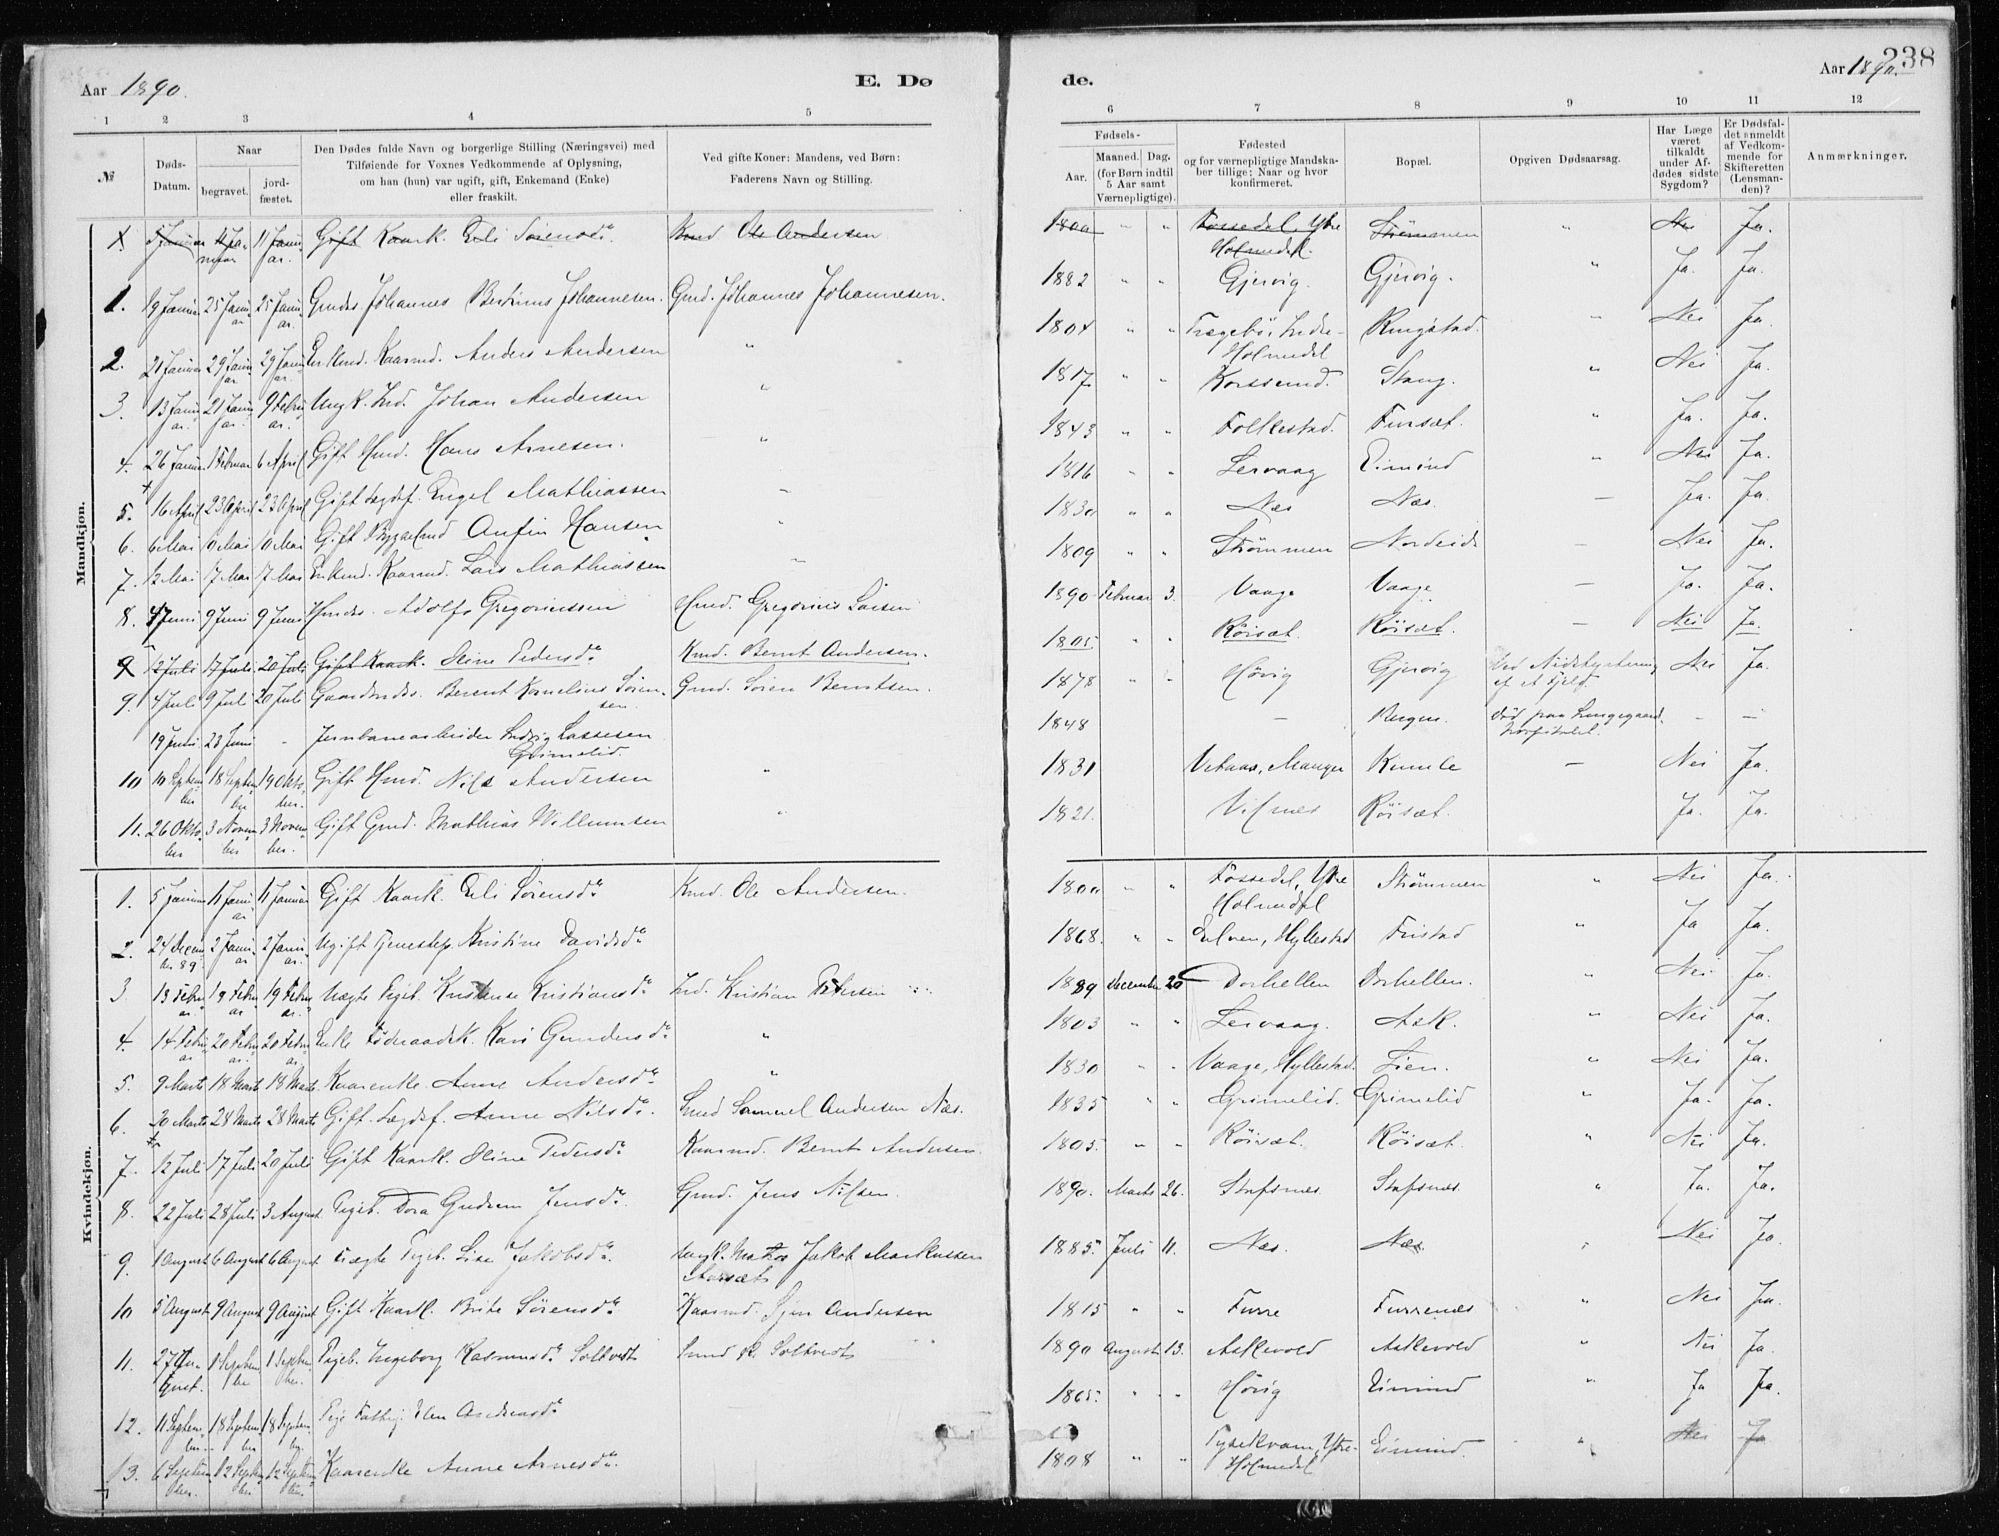 238
Aar 1890.
E. Dø
de.
Aar 1890.
1 2 3 4 5
6 7 8 9 10 11 12
№
Døds-Datum.
Naar
begravet.
jord-fæstet.
Den Dødes fulde Navn og borgerlige Stilling (Næringsvei) med
Tilføiende for Voxnes Vedkommende af Oplysning,
om han (hun) var ugift, gift, Enkemand (Enke)
eller fraskilt.
Ved gifte Koner: Mandens, ved Børn:
Faderens Navn og Stilling.
Fødsels-
Aar.
Maaned. Dag.
(for Børn indtil
5 Aar samt
Værnepligtige).
Fødested
og for værnepligtige Mandska-
ber tillige: Naar og hvor
konfirmeret.
Bopæl.
Opgiven Dødsaarsag.
Har Læge
været
tilkaldt
under Af-
dødes sidste
Sygdom?
Er Dødsfal-
det anmeldt
af Vedkom-
mende for
Skifteretten
(Lensman-
den)?
Anmærkninger.
Mandkjøn.
Gift Kaark. Eli Sørensdr. Ole Andersen 1800 " " Fossedel, Ytre Holmedal. Strømmen " Nei Ja.
1. 19 Januar 25 Januar 25 Januar Johannes Bertinus Johannesen. Gmd. Johannes Johannesen. 1882 " " Gjervig. Gjervig. " Ja. Ja.
2. 21 Januar 29 Januar 29 Januar Kaarmd. Anders Andersen " 1804 " " Indre-Holmedal Ringstad. " Nei Ja.
3. 13 Januar 21 Januar 9 Februar Ungk. Ind. Johan Andersen " 1817 " " Korssund. Stang. " Nei Ja.
4. 26 Januar 1 Februar 6 April Gift Hmd. Hans Arnesen. " 1843 " " Folkestad. Fursæt. " Ja. Ja.
5. 16 April 23 April 23 April Gift Lægdsf. Engel Mathiassen " 1816 " " Lervaag Eimind " Nei Ja.
6. 6 Mai 10 Mai 10 Mai Gift Anfin Hansen " 1830 " " Næs Næs. " Ja. Ja.
7. 12 Mai 17 Mai 17 Mai Enkmd. Kaarmd. Lars Mathiassen " 1809 " " Strømmen Nordeide " Nei Ja.
8. 4 Juni 9 Juni 9 Juni Hmdss. Adolf Gregoriussen Hmd. Gregorius Larsen 1890 Februar 3. Vaage Vaage " Ja. Ja.
9 12 Juli 17 Juli 20 Juli Gift Kaark. Oline Pedersdr. Kmd. Bernt Andersen. 1805 " " Röisæt. Röisæt. " Nei Ja.
9. 4 Juli 9 Juli 20 Juli Gaardmdss. Berent Kornelius Sörensen. Gmd. Sören Berntsen. 1878 " " Hövig Gjervig Ved Nedstyrtning af et Fjeld Nei Ja.
19 Juni 23 Juni - Jernbanearbeider Ludvig Lassesen Grimelid. 1848 - Bergen. Död paa Lungegaards hospitalet. - -
10 10 September 18 September 19 Oktober. Gift Hmd. Nils Andersen " 1831 Manger Kumle - Nei Ja.
11. 26 Oktober 3 November 3 November. Gift Gmd. Mathias Willumsen " 1821. Vilnes Röisæt. Ja. Ja.
Kvindekjøn.
1. 5 Januar 11 Januar 11 Januar Gift Kaark. Eli Sörensdr. Kmd. Ole Andersen. 1800 " " Fossedel, Ytre Holmedal Strömmen " Nei Ja.
2. 24 December 89. 2 Januar 2 Januar Ugift Tjenestep. Kristine Davidsdr. 1868. " " Hyllestad Fristad " Ja Ja.
3 13 Februar 19 Februar 19 Februar Uægte Pigeb. Kristense Kristiansdr. Ind. Kristian Petersen 1889 December 20 Dorhellen Dorhellen. " Nei Ja.
4. 14 Februar 20 Februar 20 Februar Enke Föderaadsk. Kari Gundersdr. " 1803 " " Lervaag. Ask. " Nei Ja.
5. 9 Marts 18 Marts 18 Marts Kaarenke. Anne Andersdr. " 1830 " " Vaage, Hyllestad. Lien. " Nei Ja.
6. 20 Marts 28 Marts 28 Marts Gift. Lægdsf. Anne Nilsdr. Samuel Andersen Næs. 1835 " " Grimelid. Grimelid " Ja. Ja.
7. 12 Juli 17 Juli 20 Juli Gift Kaark. Oline Pedersdr. Kaarmd. Bernt Andersen. 1805. " " Röisæt. Röisæt. " Nei Ja.
8. 22 Juli 28 Juli 3 August. Pigeb. Dora Gudrun Jensdr. Gmd. Jens Nilsen. 1890. Marts 26. Stafsnes. Stafsnes. " Ja. Ja.
9. 1 August 6 August 6 August. Uægte Pigeb. Lise Jakobsdr. Ungk. Jakob Markussen Aarsæt 1885. Juli 11. Næs. Næs. " Nei Ja.
10 5 August 9 August 9 August Gift Kaark. Brite Sörensdr. Kaarmd. Andersen 1815 " " Furre Furrenæs " Nei Ja.
11. 27 August. 1 September 1 September Pigeb. Ingeborg Rasmusdr. Soltvedt R. Soltvedt 1890 August 13. Askevold Askevold " Nei Ja.
12. 11 September 18 September 18 September. Pige Elen Andreasdr. 1865. " " Hövig Eimind " Ja Ja.
13. 6 September 12 September 12 September Kaarenke Anne Arnesdr. 1808 " " Ytre-Holmedal Eimind. " Nei Ja